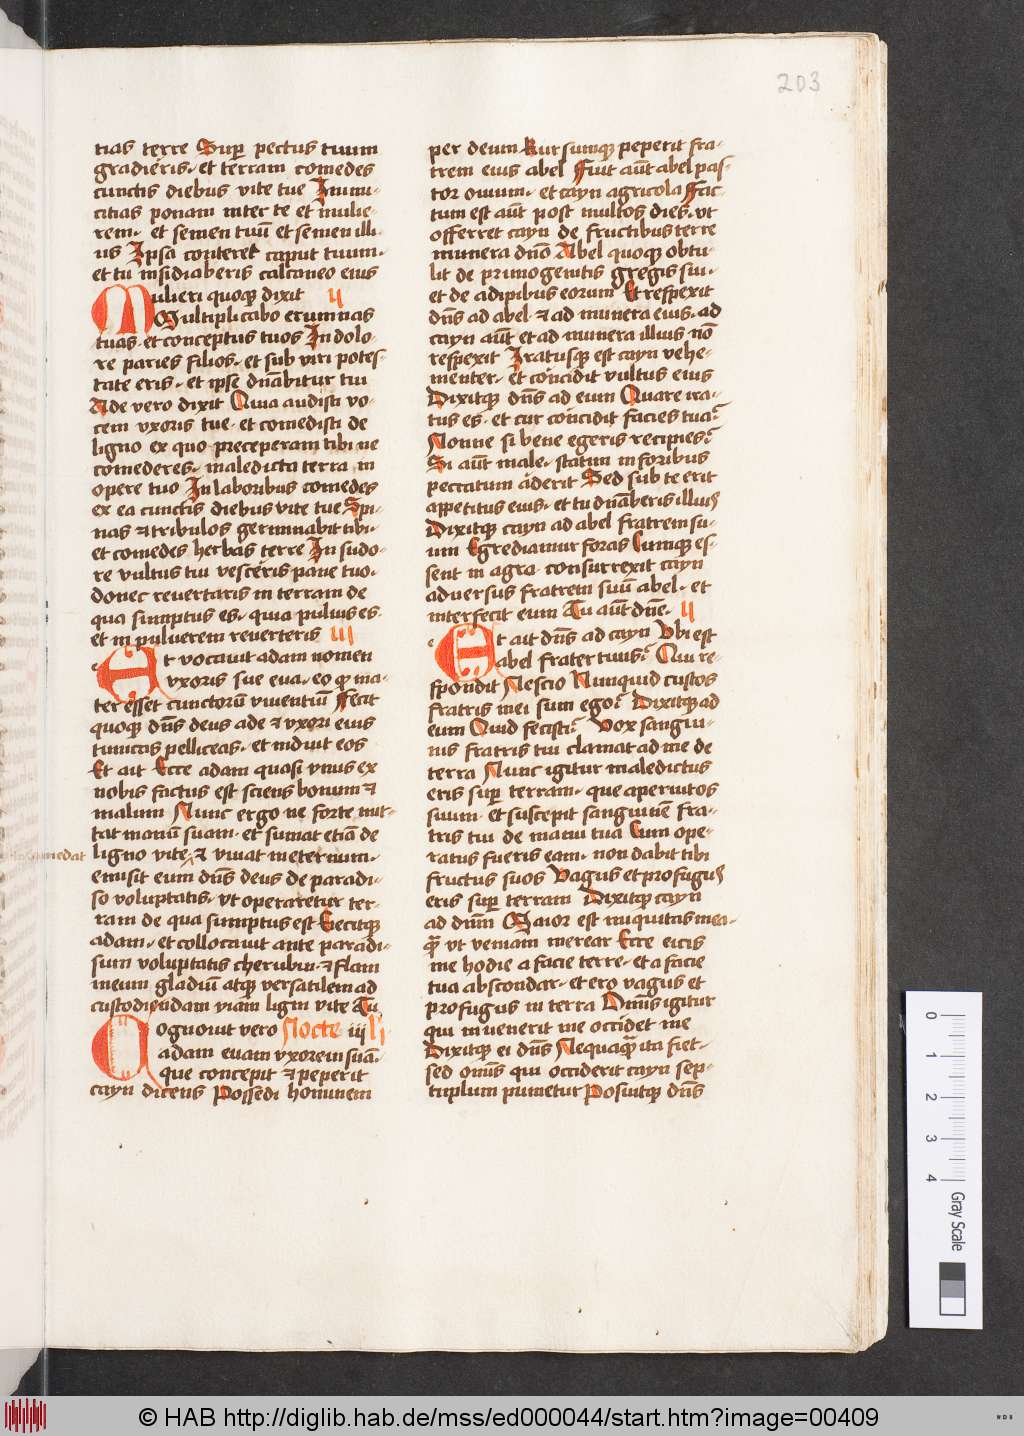 203
tias terre Sup̱ pectus tuum
gradieris · et terram comedes
cunctis diebus vite tue Inimi-
citias ponam inter te et mulie-
rem · et semen tuū et semen illi-
us Ipsa conteret caput tuum ·
et tu insidiaberis calcaneo eius
Mulieri quoqꝫ dixit II
Multiplicabo erumnas
tuas · et conceptus tuos In dolo-
re paries filios · et sub viri potes-
tate eris · et ip̄e dn̄abitur tui
Ade vero dixit Quia audisti vo-
cem vxoris tue · et comedisti de
ligno ex quo preceperam tibi ne
comederes · maledicta terra in
opere tuo In laboribus comedes
ex ea cunctis diebus vite tue Spi-
nas ⁊ tribulos germinabit tibi ·
et comedes herbas terre In sudo-
re vultus tui vesceris pane tuo ·
donec reuertaris in terram de
qua sumptus es · quia puluis es
et in puluerem reuerteris III
Et vocauit adam nomen
vxoris sue eua · eo ꝙ ma-
ter esset cunctorū viuentiū Fecit
quoqꝫ dn̄s deus ade ⁊ vxori eius
tunicas pelliceas · et induit eos
Et ait Ecce adam quasi vnus ex
nobis factus est sciens bonum ⁊
malum Nunc ergo ne forte mit-
tat manū suam · et sumat etiā de
ligno vite ⁊ viuat in eternum ·
emisit eum dn̄s deus de paradi-
so voluptatis · vt operaretur ter-
ram de qua sumptus est Eiecitqꝫ
adam · et collocauit ante paradi-
sum voluptatis cherubin · ⁊ flam
meum gladiū atqꝫ versatilem ad
custodiendam viam ligni vite Tu
Cognouit vero Nocte iij Li
adam euam vxorem suā ·
que concepit ⁊ peperit
cayn dicens Possedi hominem
per deum Rursumqꝫ peperit fra-
trem eius abel Fuit aūt abel pas-
tor ouium · et cayn agricola Fac-
tum est aūt post multos dies · vt
offerret cayn de fructibus terre
munera dn̄o Abel quoqꝫ obtu-
lit de primogenitis gregis sui ·
et de adipibus eorum Et respexit
dn̄s ad abel · ⁊ ad munera eius · ad
cayn aūt et ad munera illius nō
respexit Iratusqꝫ est cayn vehe-
menter · et concidit vultus eius
Dixitqꝫ dn̄s ad eum Quare ira-
tus es · et cur concidit facies tua?
Nonne si bene egeris recipies?
Si aūt male · statim in foribus
peccatum aderit Sed sub te erit
appetitus eius · et tu dn̄aberis illius
Dixitqꝫ cayn ad abel fratrem su-
um Egrediamur foras Cumqꝫ es-
sent in agro · consurrexit cayn
aduersus fratrem suū abel · et
interfecit eum Tu aūt dn̄e · II
Et ait dn̄s ad cayn Vbi est
abel frater tuus? Qui re-
spondit Nescio Nunquid custos
fratris mei sum ego? Dixitqꝫ ad
eum Quid fecisti? Vox sangui-
nis fratris tui clamat ad me de
terra Nunc igitur maledictus
eris sup̱ terram · que aperuit os
suum · et suscepit sanguinem fra-
tris tui de manu tua Cum ope-
ratus fueris eam · non dabit tibi
fructus suos Vagus et profugus
eris sup̱ terram Dixitqꝫ cayn
ad dn̄m Maior est iniquitas mea ·
qꝫ̄ vt veniam merear Ecce eicis
me hodie a facie terre · et a facie
tua abscondar · et ero vagus et
profugus in terra Omīs igitur
qui inuenerit me occidet me
Dixitqꝫ ei dn̄s Nequaqꝫ̄ ita fiet ·
sed omīs qui occiderit cayn sep-
tuplum punietur Posuitqꝫ dn̄s
0 1 2 3 4 Gray Scale
© HAB http://diglib.hab.de/mss/ed000044/start.htm?image=00409